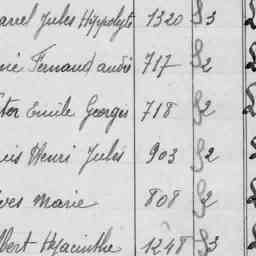 arcel Jules Hippolyte 1320 S3
né Fernand André 717 S2
ctor Emile Georges 718 S2
uis Henri Jules 903 S2
ves Marie 808 S2
lbert Hyacinthe 1248 S3